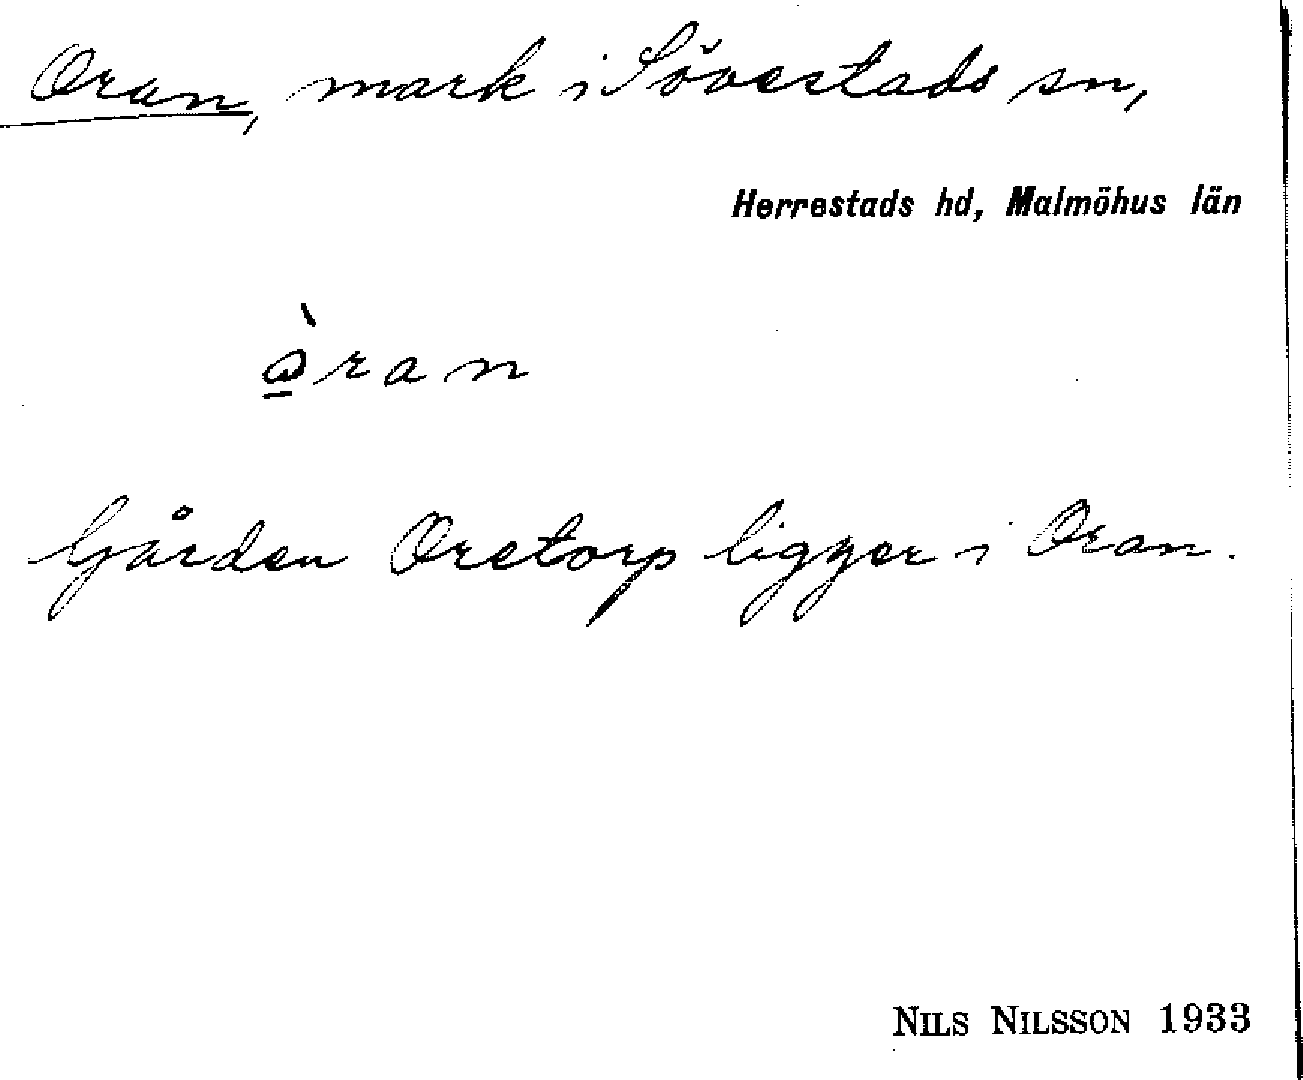 Oran, mark i Sövestads sn,
Herrestads hd, Malmöhus län
ò̱ran
Gården Oretorp ligger i Oran.
NILS NILSSON 1933